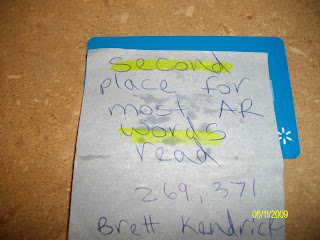 second
place for
most AR
words
read
269,371
Brett Kendrick
06/11/2009